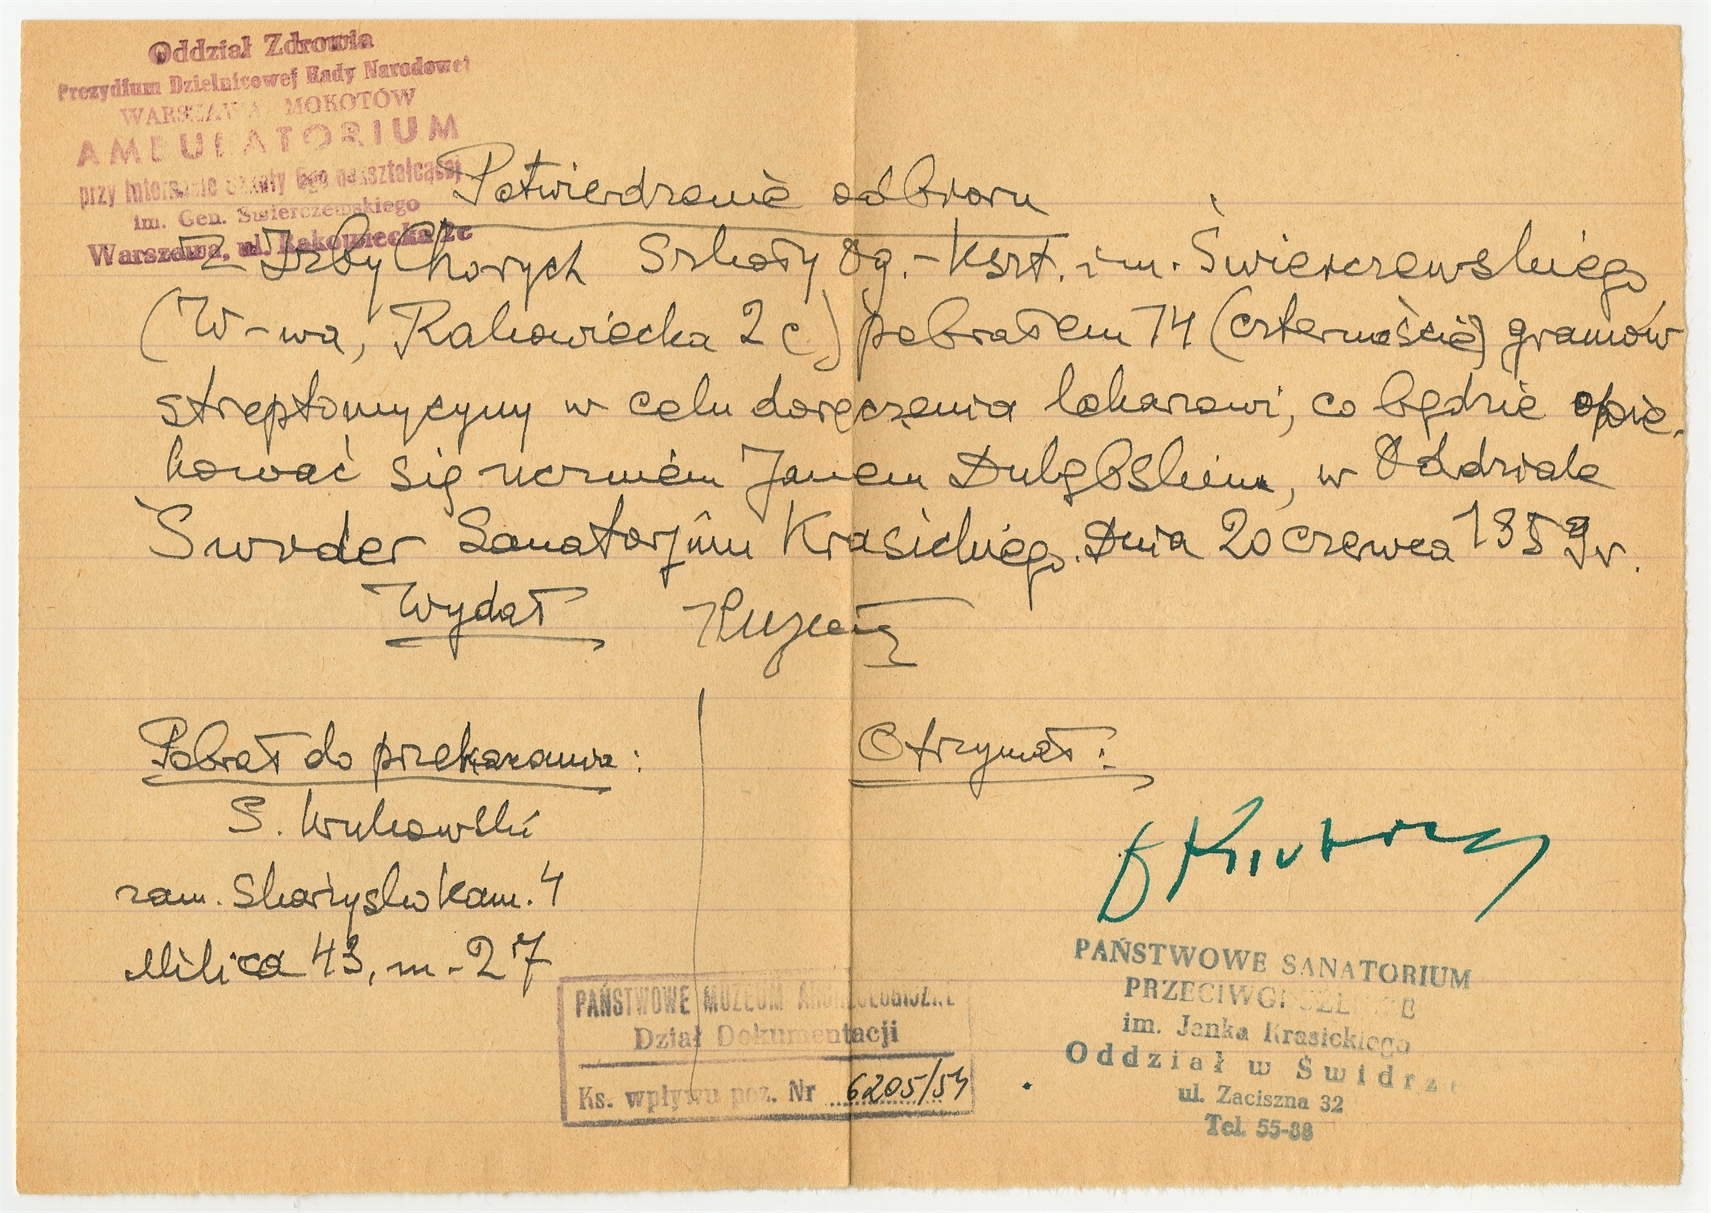 Oddział Zdrowia
Prezydium Dzielnicowej Rady Narodowej
WARSZAWA MOKOTÓW
AMBULATORIUM
przy Internacie Szkoły Ogólnokształcącej
im. Gen. Świerczewskiego
Warszawa, ul. Rakowiecka 2c
Potwierdzenie odbioru
Z Izby Chorych Szkoły Og.-Kszt. im. Świerczewskiego
(W-wa, Rakowiecka 2c) pobrałem 14 (czternaście) gramów
streptomycyny w celu doręczenia lekarzowi, co będzie opie-
kować się uczniem Janem w Oddziale
Świder Sanatorjum Krasickiego. Dnia 20 czerwca 1959 r.
Wydał
Pobrał do przekazania:
S. Krukowski
zam. Skarżysko Kam. 4
Milica 43, m-27
Otrzymał:
PAŃSTWOWE SANATORIUM
PRZECIWGRUŹLICZE
im. Janka Krasickiego
Oddział w Świdrze
ul. Zaciszna 32
Tel. 55-88
PAŃSTWOWE MUZEUM ARCHEOLOGICZNE
Dział Dokumentacji
Ks. wpływu poz. Nr 6205/54